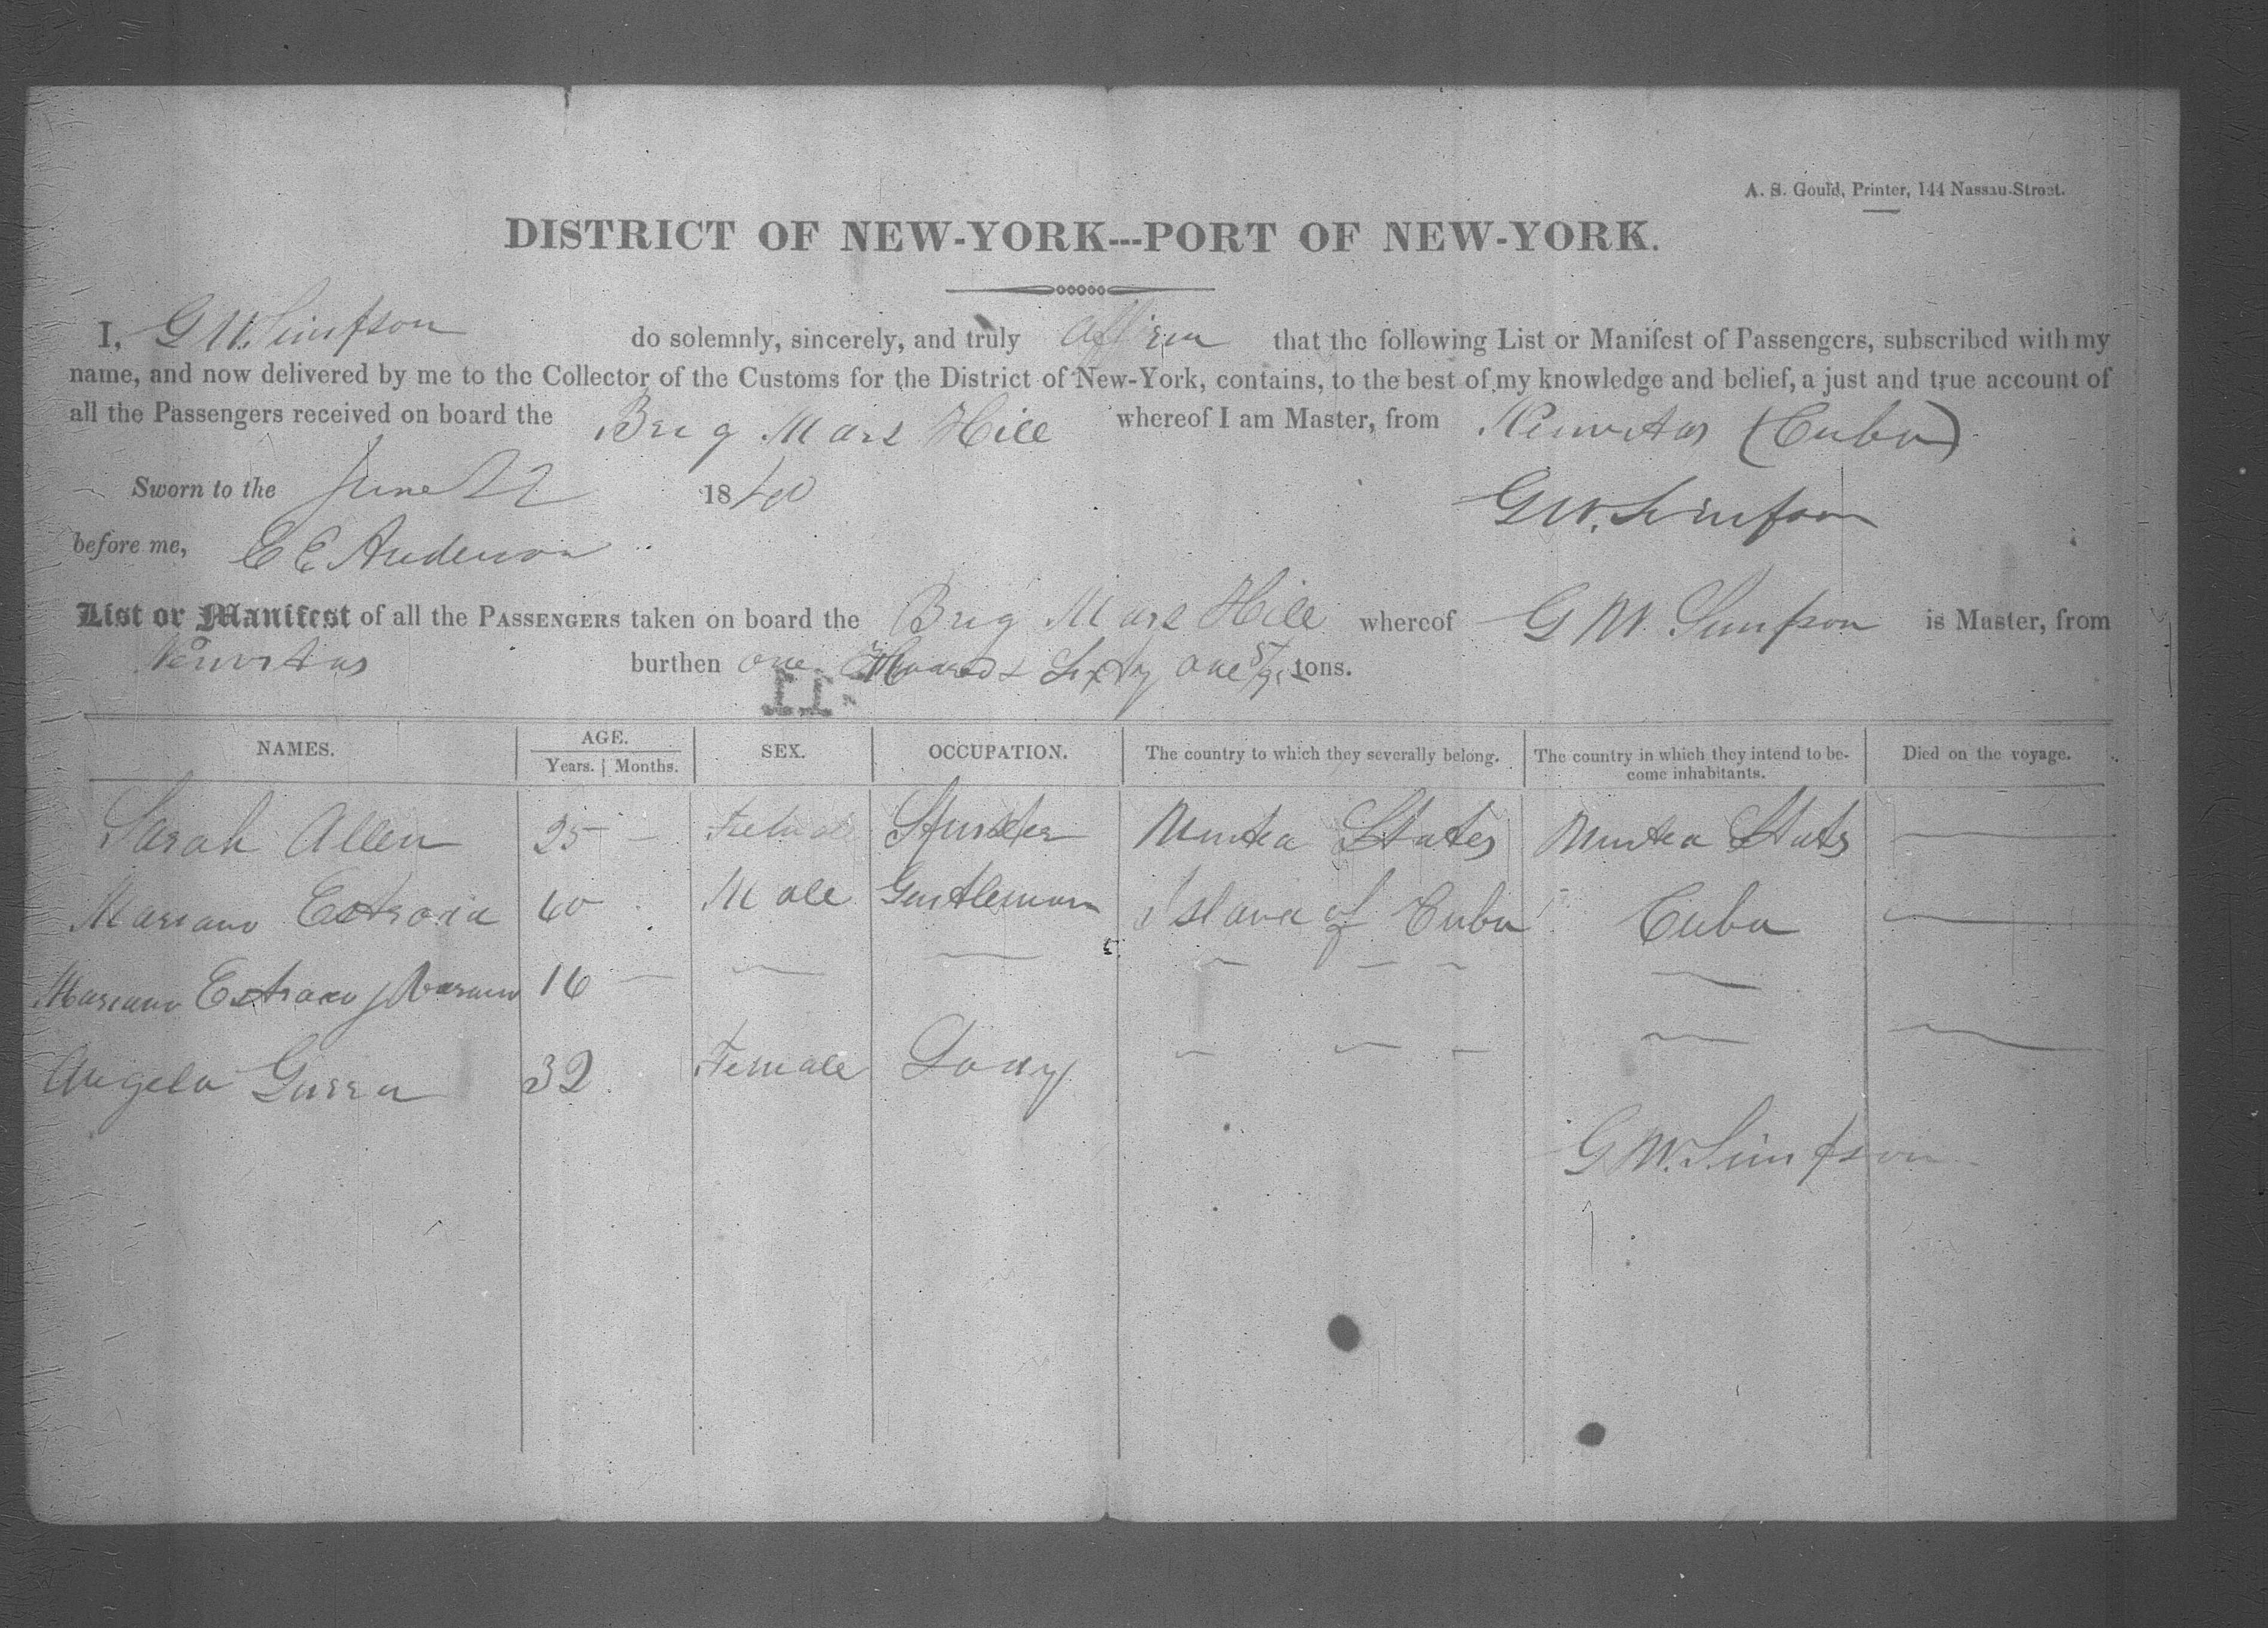 A. S. Gould, Printer, 144 Nassau-Street.
DISTRICT OF NEW-YORK---PORT OF NEW-YORK.
I, G W. Simpson do solemnly, sincerely, and truly affirm that the following List or Manifest of Passengers, subscribed with my
name, and now delivered by me to the Collector of the Customs for the District of New-York, contains, to the best of my knowledge and belief, a just and true account of
all the Passengers received on board the Brig Mars Hill whereof I am Master, from Neuvitas (Cuba)
Sworn to the June 22 1840 G W. Simpson
before me, C E Anderson
List or Manifest of all the PASSENGERS taken on board the Brig Mars Hill whereof G W. Simpson is Master, from
Neuvitas burthen one Hundred & Sixty one tons.
NAMES. AGE. SEX. OCCUPATION. The country to which they severally belong. The country in which they intend to be- Died on the voyage.
Years. Months. come inhabitants.
Sarah Allen 25 — Female Spinster United States United States —
Mariano 40 Male Gentleman Island of Cuba Cuba —
Mariano 16 — — — — — — —
Angela Guerra 32 Female Lady — — — — —
G W. Simpson